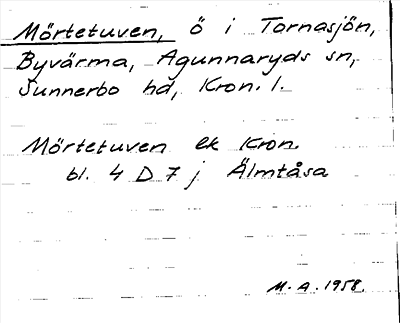 Mörtetuven, ö i Tornasjön,
Byvärma, Agunnaryds sn,
Sunnerbo hd, Kron. l.
Mörtetuven ek Kron.
bl. 4 D 7 j Älmtåsa
M. A. 1958.